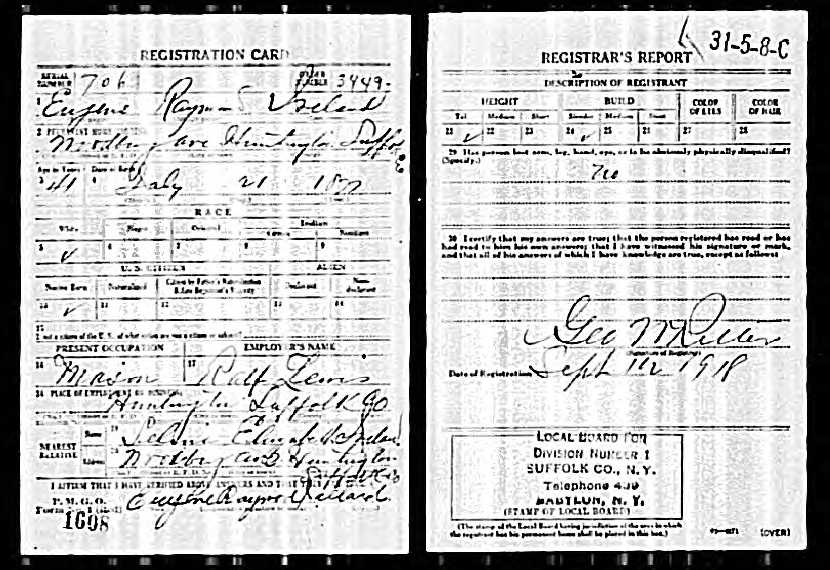 REGISTRATION CARD
SERIAL NUMBER 706 ORDER NUMBER 3449
1 Eugene Raymond
2 PERMANENT HOME ADDRESS
ave Huntington Suffolk
Age in Years Date of Birth
3 41 4 July 21 1877
RACE
White Negro Oriental Indian
Citizen Noncitizen
5 ✓ 6 7 8 9
U. S. CITIZEN ALIEN
Native Born Naturalized Citizen by Father's Naturalization Before Registrant's Majority Declarant Non-declarant
10 ✓ 11 12 13 14
15
If not a citizen of the U. S. of what nation are you a citizen or subject?
PRESENT OCCUPATION EMPLOYER'S NAME
16 Mason 17 Ralf Lewis
18 PLACE OF EMPLOYMENT OR BUSINESS
Huntington Suffolk Co
NEAREST RELATIVE Name 19 Elizabeth
Address 20 Huntington
Suffolk Co
I AFFIRM THAT I HAVE VERIFIED ABOVE ANSWERS AND THAT THEY ARE TRUE
P. M. G. O.
Form No. 1 (Red) Eugene Raymond
1608
31-5-8-C
REGISTRAR'S REPORT
DESCRIPTION OF REGISTRANT
HEIGHT BUILD COLOR OF EYES COLOR OF HAIR
Tall Medium Short Slender Medium Stout
21 ✓ 22 23 24 ✓ 25 26 27 28
29 Has person lost arm, leg, hand, eye, or is he obviously physically disqualified?
(Specify.)
no
30 I certify that my answers are true; that the person registered has read or has
had read to him his own answers; that I have witnessed his signature or mark,
and that all of his answers of which I have knowledge are true, except as follows:
Geo M
(Signature of Registrar)
Date of Registration Sept 12 1918
LOCAL BOARD FOR
DIVISION NUMBER 1
SUFFOLK CO., N. Y.
Telephone 439
BABYLON, N. Y.
(STAMP OF LOCAL BOARD)
(The stamp of the Local Board having jurisdiction of the area in which
the registrant has his permanent home shall be placed in this box.)
(OVER)